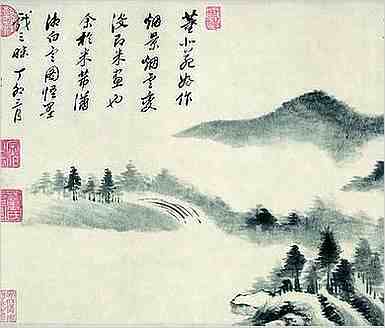 董北苑好作
烟景烟雲變
没即米畫也
余於米芾瀟
湘白雲圖悟墨
戲三昧 丁